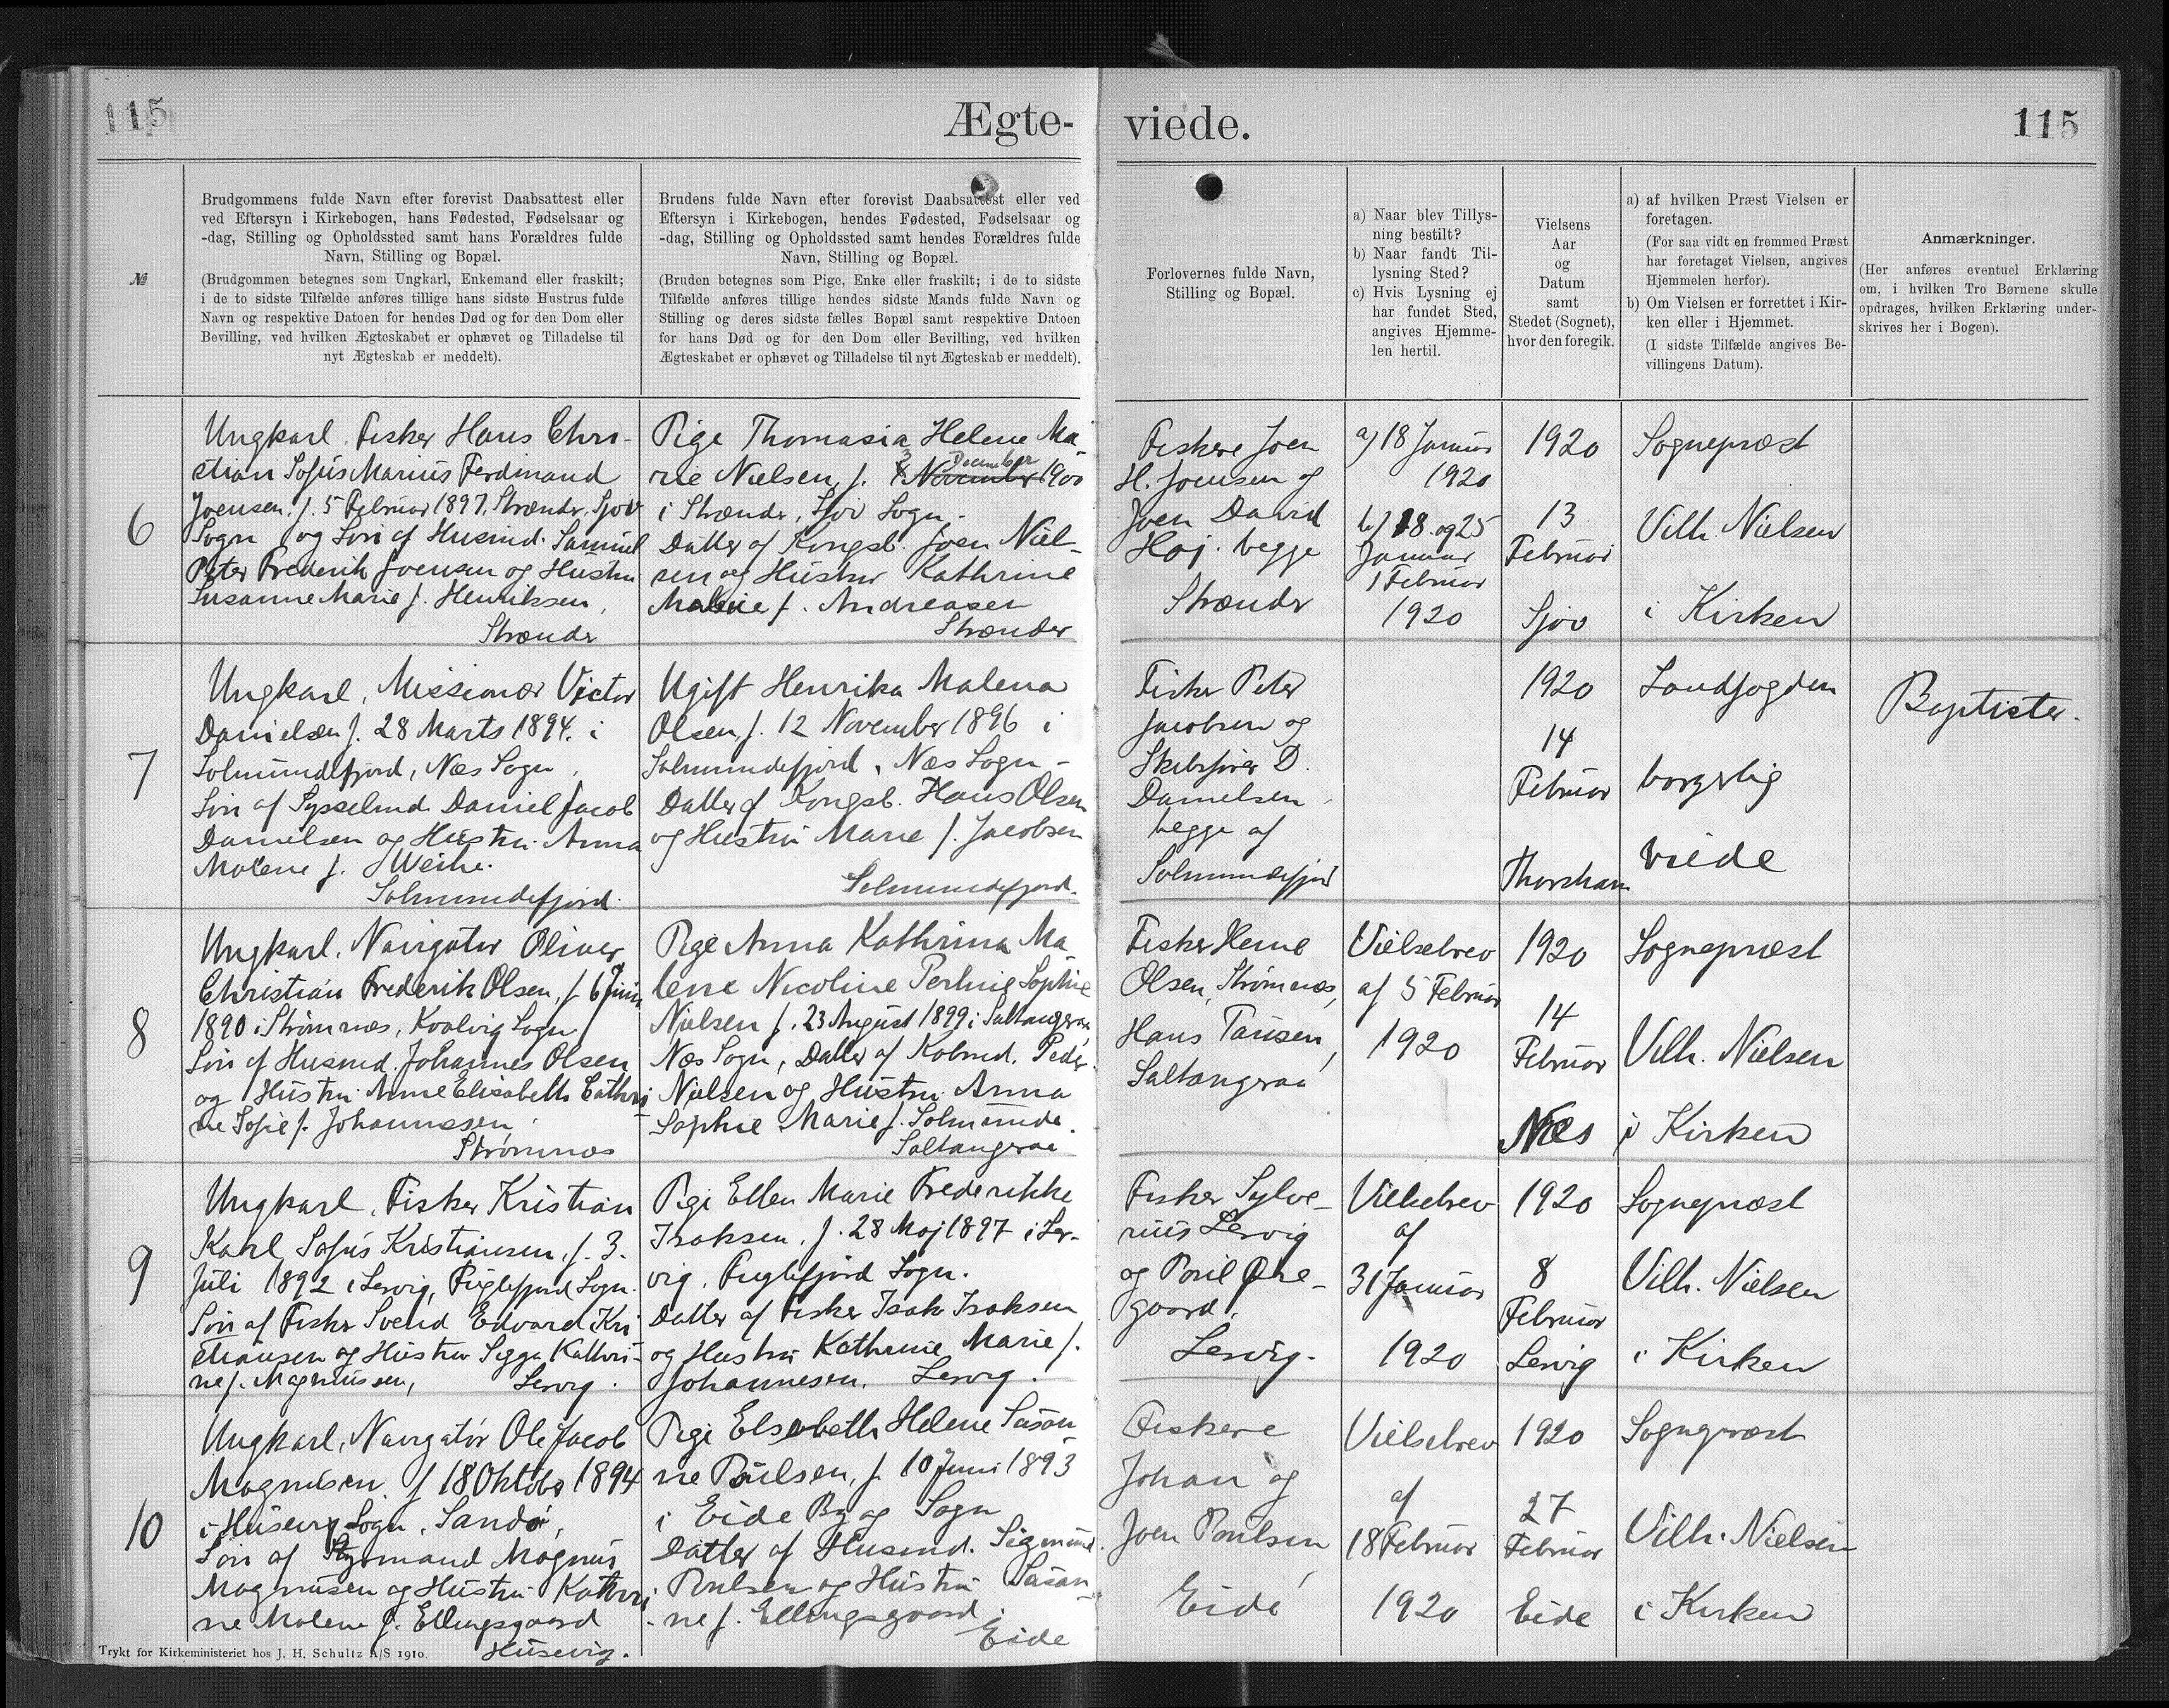 115
Ægte-
viede.
115
№
Brudgommens fulde Navn efter forevist Daabsattest eller
ved Eftersyn i Kirkebogen, hans Fødested, Fødselsaar og
-dag, Stilling og Opholdssted samt hans Forældres fulde
Navn, Stilling og Bopæl.
(Brudgommen betegnes som Ungkarl, Enkemand eller fraskilt;
i de to sidste Tilfælde anføres tillige hans sidste Hustrus fulde
Navn og respektive Datoen for hendes Død og for den Dom eller
Bevilling, ved hvilken Ægteskabet er ophævet og Tilladelse til
nyt Ægteskab er meddelt).
Brudens fulde Navn efter forevist Daabsattest eller ved
Eftersyn i Kirkebogen, hendes Fødested, Fødselsaar og
-dag, Stilling og Opholdssted samt hendes Forældres fulde
Navn, Stilling og Bopæl.
(Bruden betegnes som Pige, Enke eller fraskilt; i de to sidste
Tilfælde anføres tillige hendes sidste Mands fulde Navn og
Stilling og deres sidste fælles Bopæl samt respektive Datoen
for hans Død og for den Dom eller Bevilling, ved hvilken
Ægteskabet er ophævet og Tilladelse til nyt Ægteskab er meddelt).
Forlovernes fulde Navn,
Stilling og Bopæl.
a) Naar blev Tillys-
ning bestilt?
b) Naar fandt Til-
lysning Sted?
c) Hvis Lysning ej
har fundet Sted,
angives Hjemme-
len hertil.
Vielsens
Aar
og
Datum
samt
Stedet (Sognet),
hvor den foregik.
a) af hvilken Præst Vielsen er
foretagen.
(For saa vidt en fremmed Præst
har foretaget Vielsen, angives
Hjemmelen herfor).
b) Om Vielsen er forrettet i Kir-
ken eller i Hjemmet.
(I sidste Tilfælde angives Be-
villingens Datum).
Anmærkninger.
(Her anføres eventuel Erklæring
om, i hvilken Tro Børnene skulle
opdrages, hvilken Erklæring under-
skrives her i Bogen).
6
Ungkarl. Fisker Hans Chri-
stian Sofus Marius Ferdinand
Joensen. f. 5 Februar 1897, Strænder, Sjov
Sogn og Søn af Husmd. Samuel
Peter Frederik Joensen og Hustru
Susanne Marie f. Henriksen,
Strænder
Pige Thomasia Helene Ma
rie Nielsen, f. 3 November December 1900
i Strænder, Sjov Sogn.
Datter af Kongsb. Joen Niel-
sen og Hustru Kathrine
Malene f. Andreasen
Strænder
Fiskere Joen
H. Joensen og
Joen David
Høj. begge
Strænder
a) 18 Januar
1920
b) 18. og 25
Januar
1 Februar
1920
1920
13
Februar
Sjov
Sognepræst
Vilh. Nielsen
i Kirken
7
Ungkarl, Missionær Victor
Danielsen f. 28 Marts 1894. i
Solmundefjord, Næs Sogn.
Søn af Sysselmd. Daniel Jacob
Danielsen og Hustru Anna
Malene f. Weihe.
Solmundefjord.
Ugift Henrika Malena
Olsen, f. 12 November 1896 i
Solmundefjord, Næs Sogn -
Datter af Kongsb. Hans Olsen
og Hustru Marie f. Jacobsen
Solmundefjord.
Fisker Peter
Jacobsen og
Skibsfører D.
Danielsen,
begge af
Solmundefjord
1920
14
Februar
Thorshavn
Landfogden
borgerlig
viede
Baptister.
8
Ungkarl, Navigatør Oliver
Christian Frederik Olsen, f. 6 Juni
1890 i Strømnæs, Kvalvig Sogn
Søn af Husmd. Johannes Olsen
og Hustru Anne Elisabeth Cathri
ne Sofie f. Johannesen,
Strømnæs
Pige Anna Kathrina Ma
lene Nicoline Sophie
Nielsen f. 23 August 1899 i Saltangeraa
Næs Sogn, Datter af Peder
Nielsen og Hustru Anna
Sophie Marie f. Solmunde.
Saltangeraa
Fisker
Olsen, Strømnæs,
Hans Tausen,
Saltangeraa
Vielsebrev
af 5 Februar
1920
1920
14
Februar
Næs
Sognepræst
Vilh. Nielsen
i Kirken
9
Ungkarl, Fisker Kristian
Karl Sofus Kristiansen, f. 3.
Juli 1892 i Lervig, Fuglefjord Sogn.
Søn af Fisker Svend Edvard Kri
stiansen og Hustru Sigga Kathri-
ne f. Magnussen, Lervig.
Pige Ellen Marie Frederikke
Isaksen, f. 28 Maj 1897 i Ler-
vig, Fuglefjord Sogn.
Datter af Fisker Isak Isaksen
og Hustru Kathrine Marie f.
Johannesen, Lervig.
Fisker Sylve-
rius Lervig
og Poul Øre-
gaard,
Lervig.
Vielsebrev
af
31 Januar
1920
1920
8
Februar
Lervig
Sognepræst
Vilh. Nielsen
i Kirken
10
Ungkarl, Navigatør Ole Jacob
Magnusen f. 18 Oktober 1894
i Husevig Sogn, Sandø,
Søn af Styrmand Magnus
Magnusen og Hustru Kathri
ne Malene f. Ellingsgaard
Husevig.
Pige Elsebeth Helene Susan
ne Poulsen, f. 10 Juni 1893
i Eide By og Sogn
Datter af Husmd. Sigmund
Poulsen og Hustru Susan
ne f. Ellingsgaard
Eide
Fiskere
Johan og
Joen Poulsen
Eide
Vielsebrev
af
18 Februar
1920
1920
27
Februar
Eide
Sognepræst
Vilh. Nielsen
i Kirken
Trykt for Kirkeministeriet hos J. H. Schultz A/S 1910.